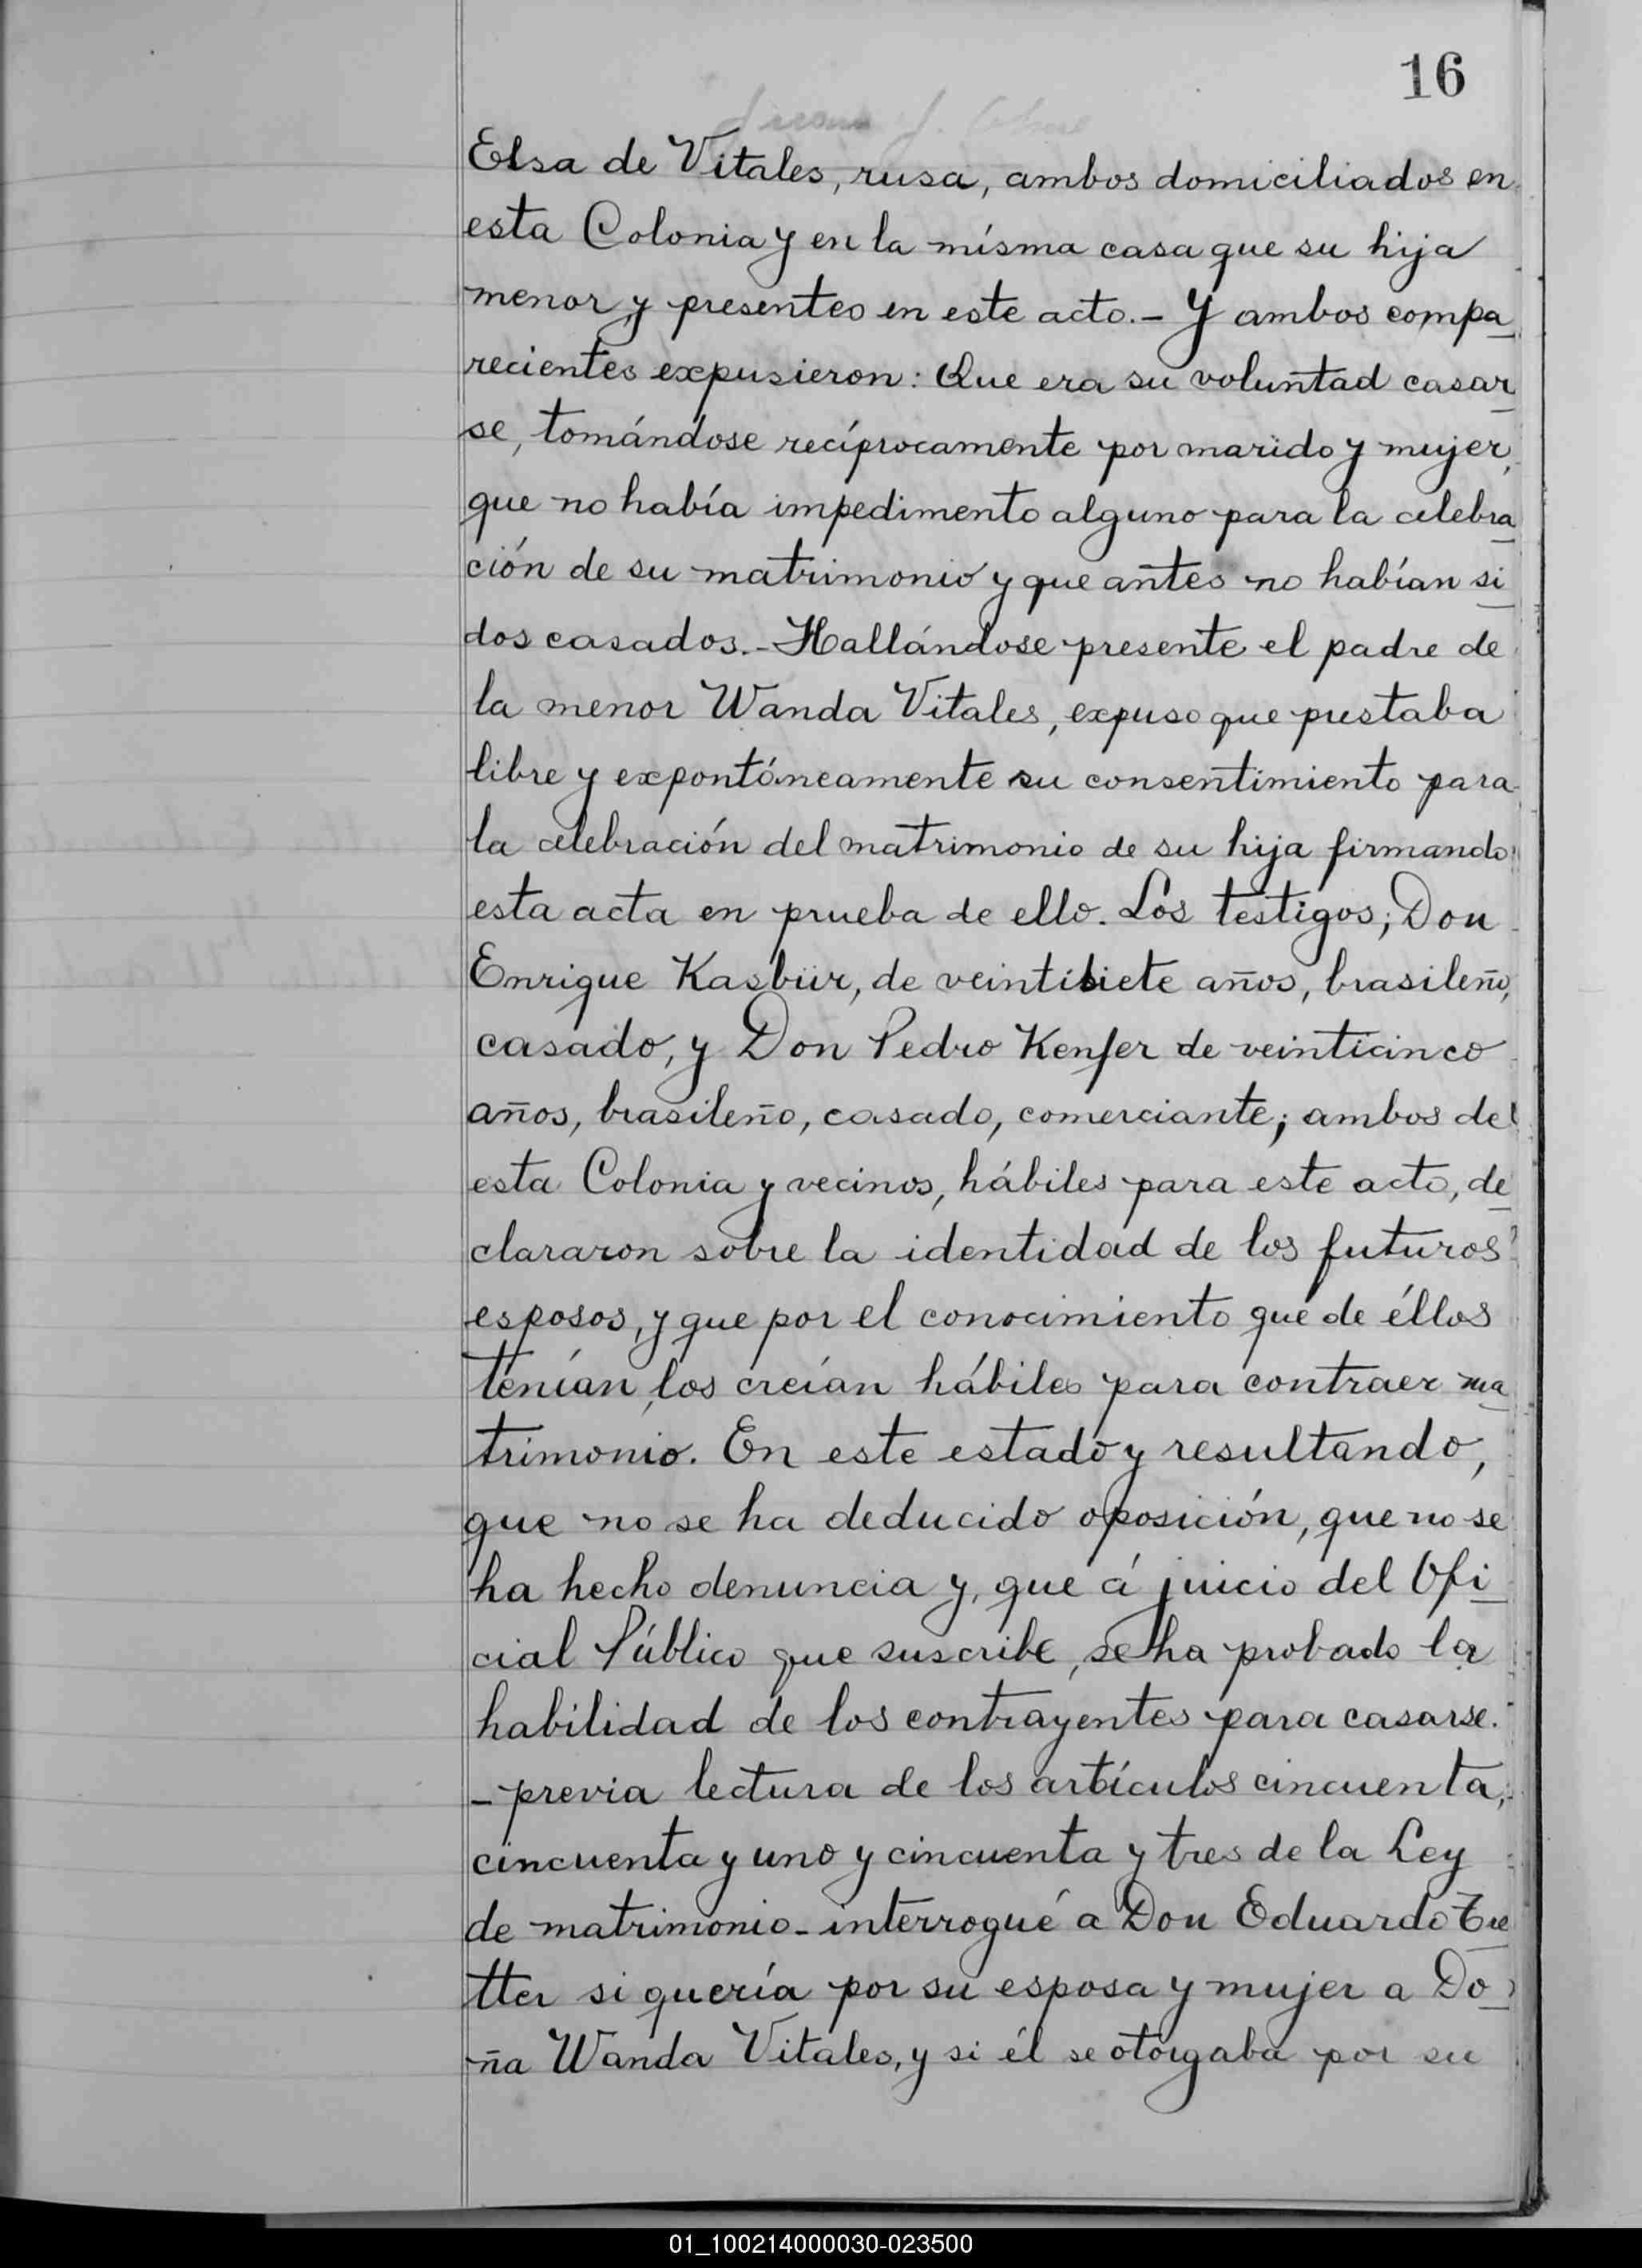 16
Elsa de Vitales, rusa, ambos domiciliados en
esta Colonia y en la mísma casa que su hija
menor y presentes en este acto.- Y ambos compa
recientes expusieron: Que era su voluntad casar
se, tomándose recíprocamente por marido y mujer,
que no había impedimento alguno para la celebra
ción de su matrimonio y que antes no habían si
dos casados.- Hallándose presente el padre de
la menor Wanda Vitales, expuso que prestaba
libre y expontáneamente su consentimiento para
la celebración del matrimonio de su hija firmando
esta acta en prueba de ello. Los testigos; Don
Enrique Kasbür, de veintisiete años, brasileño,
casado, y Don Pedro Kenfer de veinticinco
años, brasileño, casado, comerciante; ambos de
esta Colonia y vecinos, hábiles para este acto, de
clararon sobre la identidad de los futuros
esposos, y que por el conocimiento que de éllos
tenían, los creían hábiles para contraer ma
trimonio. En este estado y resultando,
que no se ha deducido oposición, que no se
ha hecho denuncia y, que á juicio del Ofi
cial Público que suscribe, se ha probado la
habilidad de los contrayentes para casarse.
- previa lectura de los artículos cincuenta,
cincuenta y uno y cincuenta y tres de la Ley
de matrimonio - interrogué a Don Eduardo
tter si quería por su esposa y mujer a Do
ña Wanda Vitales, y si él se otorgaba por su
01_100214000030-023500